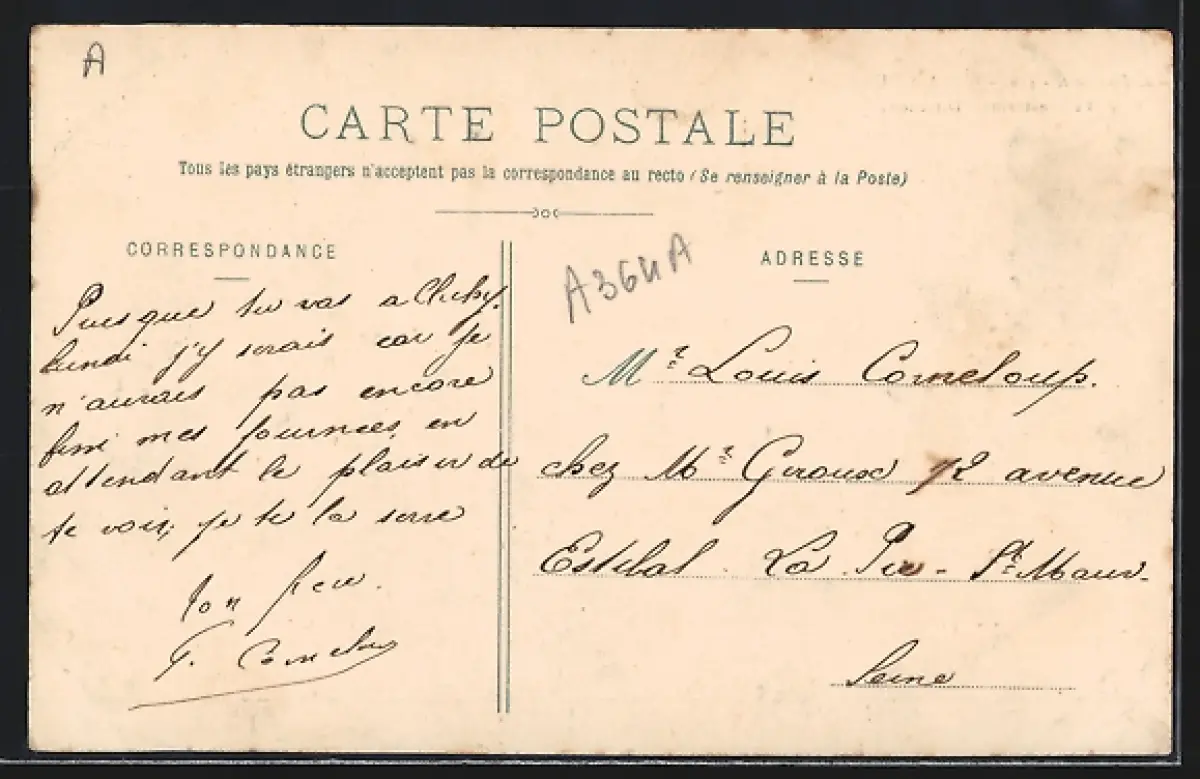 A
CARTE POSTALE
Tous les pays étrangers n'acceptent pas la correspondance au recto (Se renseigner à la Poste)
CORRESPONDANCE
Puisque tu vas a Clichy
lundi j'y serais car je
n'aurais pas encore
fini mes journees, en
attendant le plaisir de
te voir, je te la serre
Ton frere.
F. Comeloup
A364A
ADRESSE
Mr Louis Comeloup.
chez Mr Geroux 12 avenue
La Pie - St Maur.
Seine